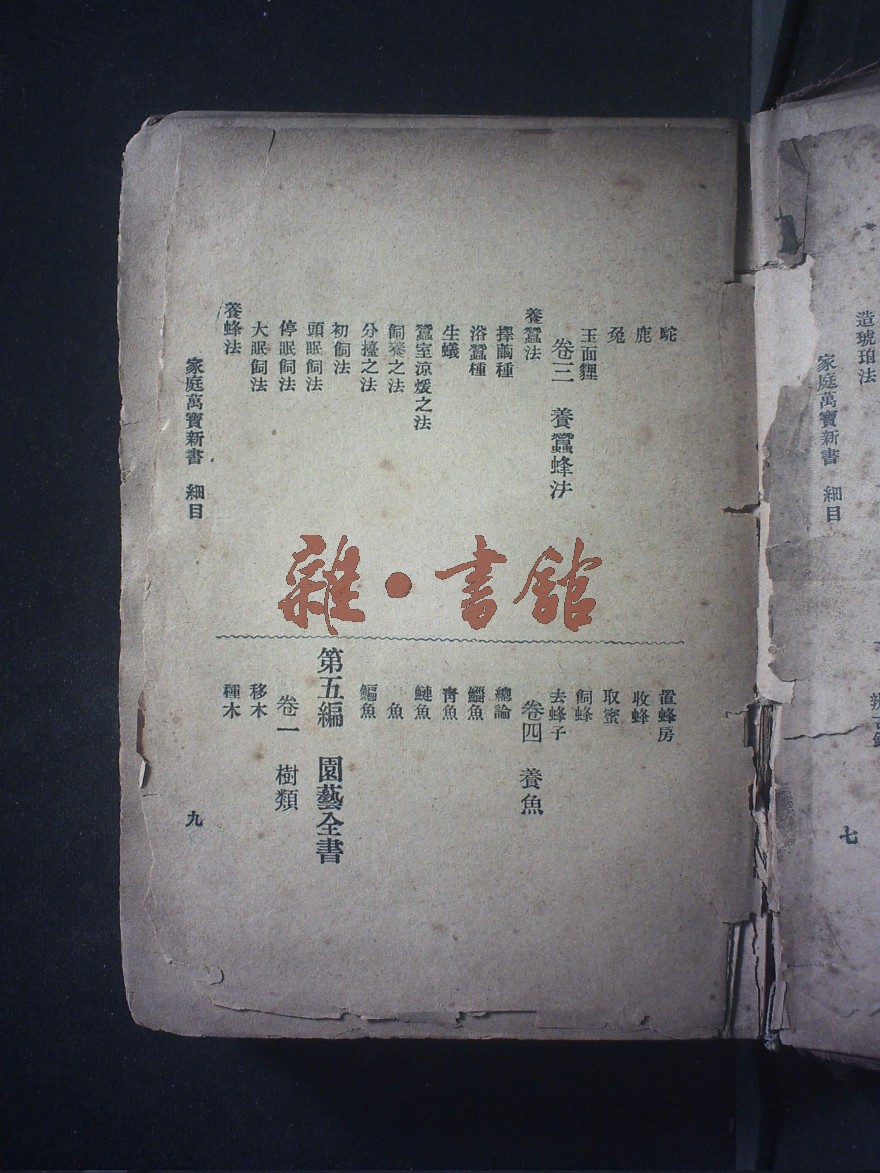 駝
鹿
兔
玉面貍
卷三 養蠶蜂法
養蠶法
擇繭種
浴蠶種
生蟻
蠶室涼煖之法
飼養之法
分擡之法
初飼法
頭眠飼法
停眠飼法
大眠飼法
養蜂法
置蜂房
收蜂
取蜜
飼蜂
去蜂子
卷四 養魚
總論
鯔魚
青魚
鰱魚
魚
鯿魚
第五編 園藝全書
卷一 樹類
移木
種木
家庭萬寶新書 細目
九
雜·書館
造琥珀法
家庭萬寶新書 細目
七